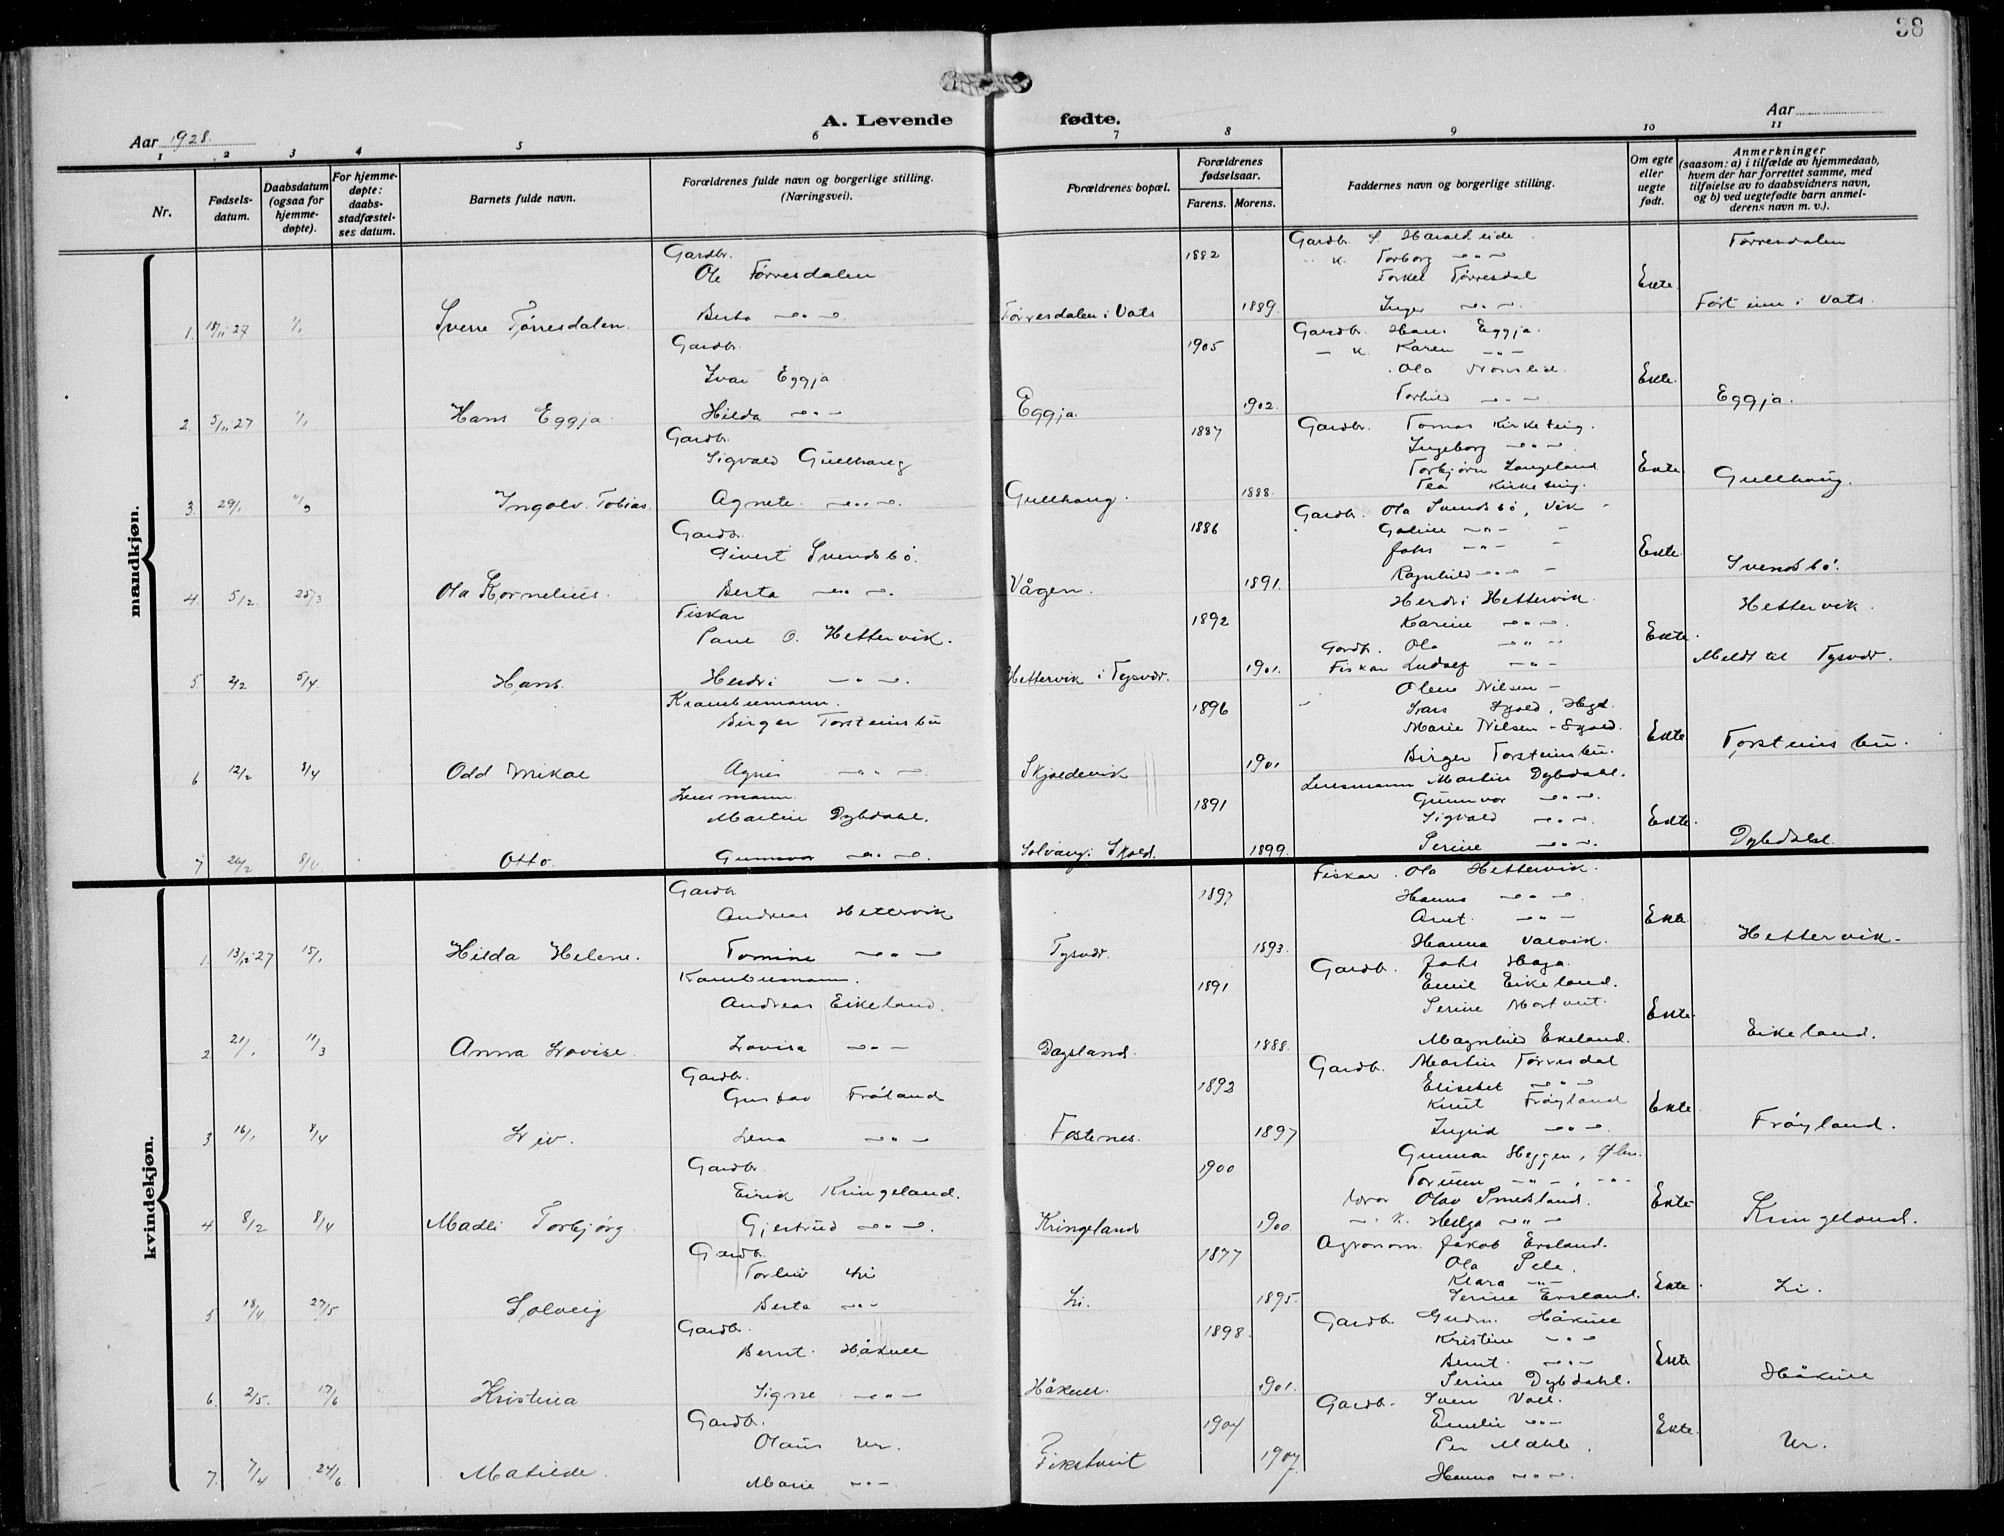 38
A. Levende fødte.
Aar 1928.
Aar
1 2 3 4 5 6 7 8 9 10 11
Nr.
Fødsels-
datum.
Daabsdatum
(ogsaa for
hjemme-
døpte).
For hjemme-
døpte:
daabs-
stadfæstel-
ses datum.
Barnets fulde navn.
Forældrenes fulde navn og borgerlige stilling.
(Næringsvei).
Forældrenes bopæl.
Forældrenes
fødselsaar.
Farens. Morens.
Faddernes navn og borgerlige stilling.
Om egte
eller
uegte
født.
Anmerkninger
(saasom: a) i tilfælde av hjemmedaab,
hvem der har forrettet samme, med
tilføielse av to daabsvidners navn,
og b) ved uegtefødte barn anmel-
derens navn m. v.).
mandkjøn.
Gardbr. 1882 Gardbr. S. Haraldseide Tørresdalen
Ole Tørresdalen " K. Torborg -"-
Torkel Tørresdal Ekte
1. 18/11 27 1/1 Sverre Tørresdalen. Berta -"- Tørresdalen i Vats 1889. Inger -"- Ført inn i Vats.
Gardbr. 1905 Gardbr. Hans Eggja.
- K. Karen -"-
Ivar Eggja Ola Ekte.
2. 5/11 27 1/1 Hans Eggja. Hilda -"- Eggja. 1902. Torhild -"- Eggja.
Gardbr. 1887 Gardbr. Tomas Kirketeig.
Sigvald Gullhaug Ingeborg -"-
Torbjørn Langeland Ekte
3. 29/1 11/3 Ingolv Tobias. Agnete -"- Gullhaug. 1888. Tea Kirketeig. Gullhaug.
Gardbr. 1886 Gardbr. Ola Svendsbø, Vik
Sivert Svendsbø. Galine -"-
Johs -"- Ekte.
4. 5/2. 25/3 Ola Kornelius. Berta -"- Vågen. 1891. Ragnhild -"- Svendsbø.
Fiskar 1892 Herdis Hettervik Hettervik.
O. Hettervik. Karine -"-
Gardb. Ola -"- Ekte.
5. 2/2 5/4 Hans Herdis -"- Hettervik i Tysvær. 1901. Fiskar Ludolf -"- Meldt til Tysvær.
Krambumann. 1896 Olene Nilsen
Birger Torsteinsbu Lars Skjold, Hgd.
Marie Nilsen - Skjold. Ekte
6 12/2 8/4 Odd Mikal Agnes -"- Skjoldevik 1901 Birger Torsteinsbu. Torsteinsbu.
Lensmann. 1891 Lensmann Martin Dybdahl.
Martin Dybdahl. Gunnvor -"-
Sigvald -"- Ekte.
7 26/2 8/4 Otto. Gunnvor -"- Solvang i Skjold. 1899. Serine -"- Dybdahl.
kvindekjøn.
Gardb. 1897 Fiskar. Ola Hettervik.
Andreas Hettervik Hanna -"-
Arnt. -"- Ekte
1. 13/12 27 15/1 Hilda Helene. Tomine -"- Tysvær 1893. Hanna Valvik. Hettervik.
Krambumann. 1891 Gardb. Johs Haga.
Andreas Eikeland. Emil Eikeland.
Serine Mortveit. Ekte.
2 21/1 11/3 Anna Lovise. Lovisa -"- Dagsland. 1888. Magnhild Eikeland. Eikeland.
Gardb. 1892 Gardb. Martin Tørresdal
Gustav Frøland Elisebet -"-
Knut Frøyland Ekte.
3 16/1 8/4 Liv. Lena -"- Fosternes. 1897 Ingrid -"- Frøyland.
Gardbr. 1900 Gunnar Heggen, Ølen.
Eirik Kringeland. Torunn -"-, -"-
Olav Smedsland. Ekte
4 8/2 8/4 Madli Torbjørg Gjertrud -"- Kringeland 1900 -"- K. Helga -"- Kringeland.
Gardb. 1877 Agronom. Jakob Ersland.
Torleiv Li Ola Sele.
Klara -"- Ekte
5 18/4 27/5 Solveig Berta -"- Li. 1895. Serine Ersland. Li.
Gardbr. 1898. Gardb. Gudm. Håkull
Bernt. Håkull Kristine -"-
Bernt. -"- Ekte
6. 2/5. 17/6 Kristina Signe -"- Håkull. 1901. Serine Dybdahl. Håkull
Gardbr. 1904 Gardb. Sven Voll.
Olaus Ur. Emelie -"- Ekte
Per Mæhle.
7. 7/4 24/6 Matilde. Marie -"- Fikstveit 1907. Hanna -"- Ur.